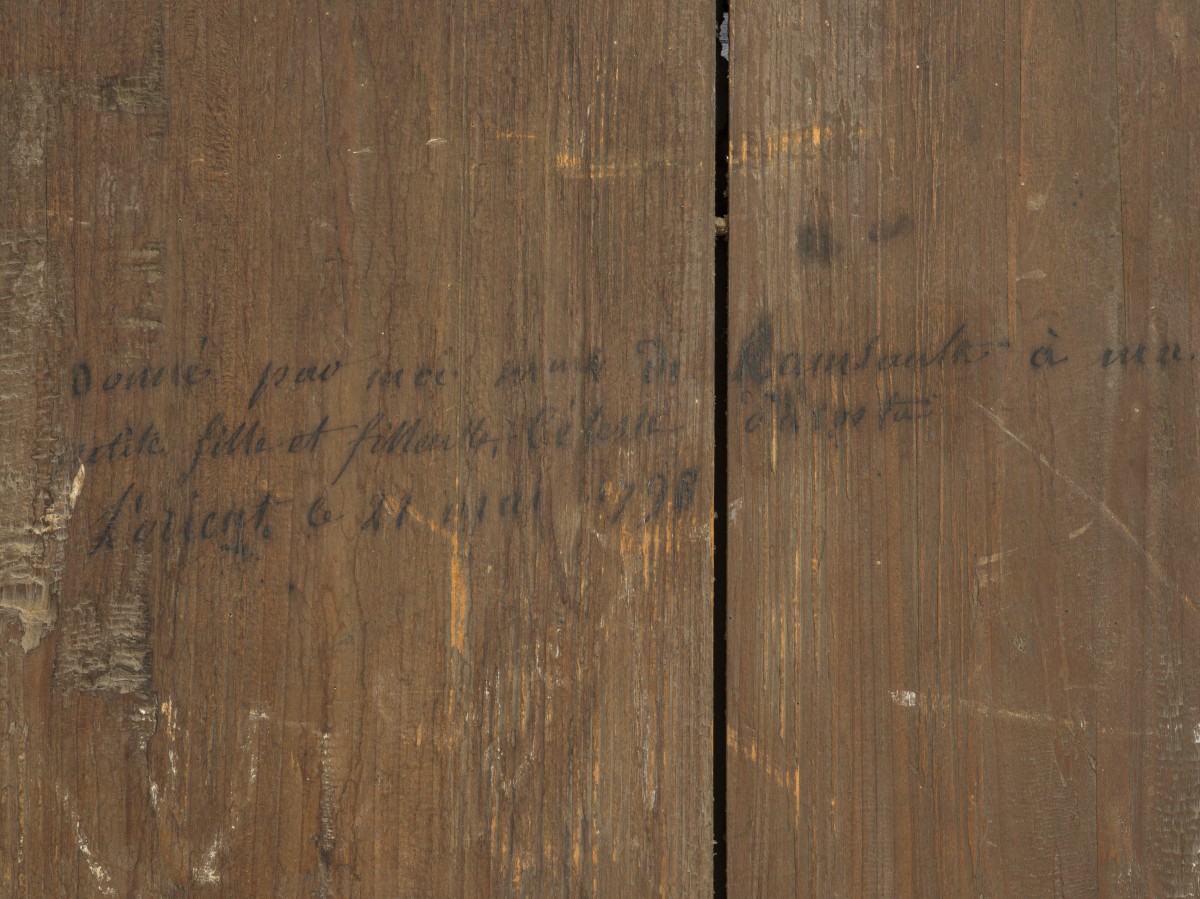 Donné par moi de Ramsault à ma
petite fille et filleule, Céleste
Lorient le 21 mai 1798